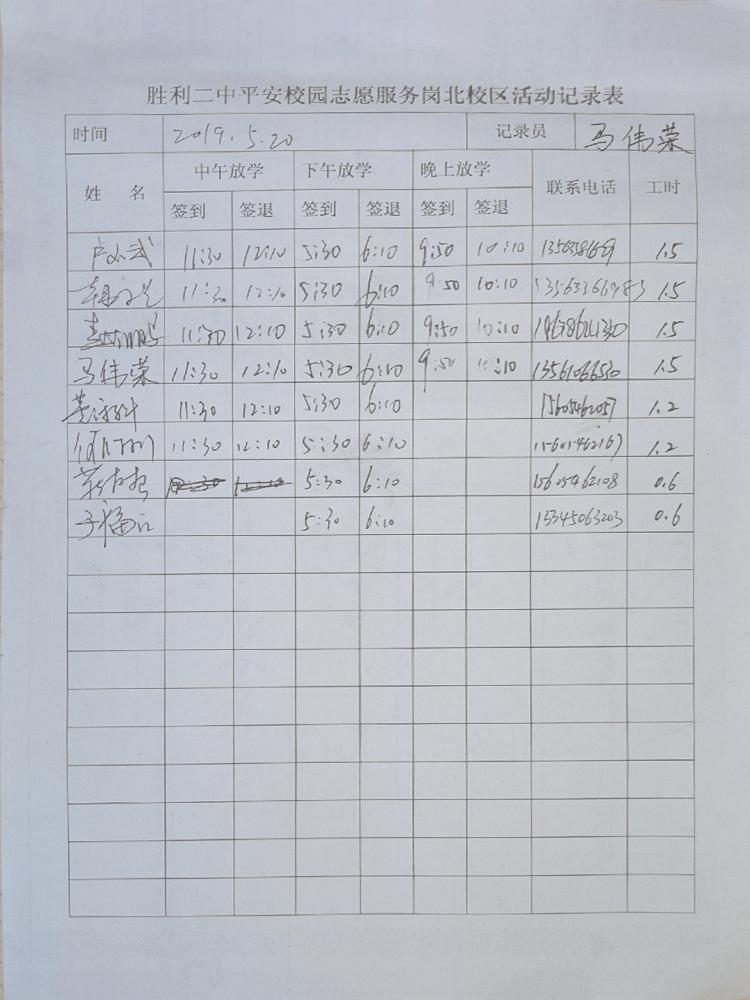 胜利二中平安校园志愿服务岗北校区活动记录表
时间 2019.5.20 记录员 马伟荣
姓 名 中午放学 下午放学 晚上放学 联系电话 工时
签到 签退 签到 签退 签到 签退
11:30 12:10 5:30 6:10 9:50 10:10 1.5
11:30 12:10 5:30 6:10 9:50 10:10 13563366983 1.5
11:30 12:10 5:30 6:10 9:50 10:10 1.5
马伟荣 11:30 12:10 5:30 6:10 9:50 10:10 13561066530 1.5
11:30 12:10 5:30 6:10 15605462057 1.2
11:30 12:10 5:30 6:10 15605462167 1.2
5:30 6:10 15605462108 0.6
5:30 6:10 15345063203 0.6